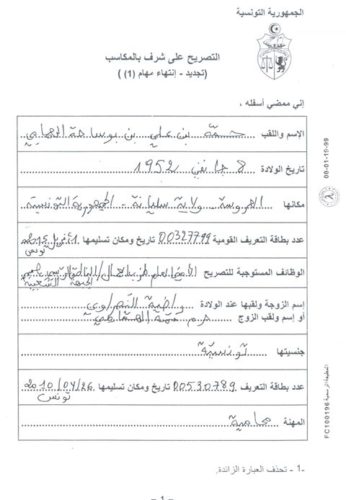 الجمهورية التونسية
التصريح على شرف بالمكاسب
(تجديد - إنتهاء مهام (1))
إني ممضي أسفله ،
الاسم واللقب حمة بن علي بن بوساحة الهمامي
تاريخ الولادة 8 جانفي 1952
مكانها العروسة ولاية سليانة - الجمهورية التونسية
عدد بطاقة التعريف القومية 00327799 تاريخ ومكان تسليمها
تونس
الوظائف المستوجبة للتصريح الناطق الرسمي باسم
الجبهة الشعبية
إسم الزوجة ولقبها عند الولادة راضية النصراوي
أو إسم ولقب الزوج حرم حمة الهمامي
جنسيتها تونسية
عدد بطاقة التعريف 00530789 تاريخ ومكان تسليمها 2010/04/26
تونس
المهنة محامية
1- تحذف العبارة الزائدة.
- 1 -
08-01-19-99
المطبعة الرسمية FC100196